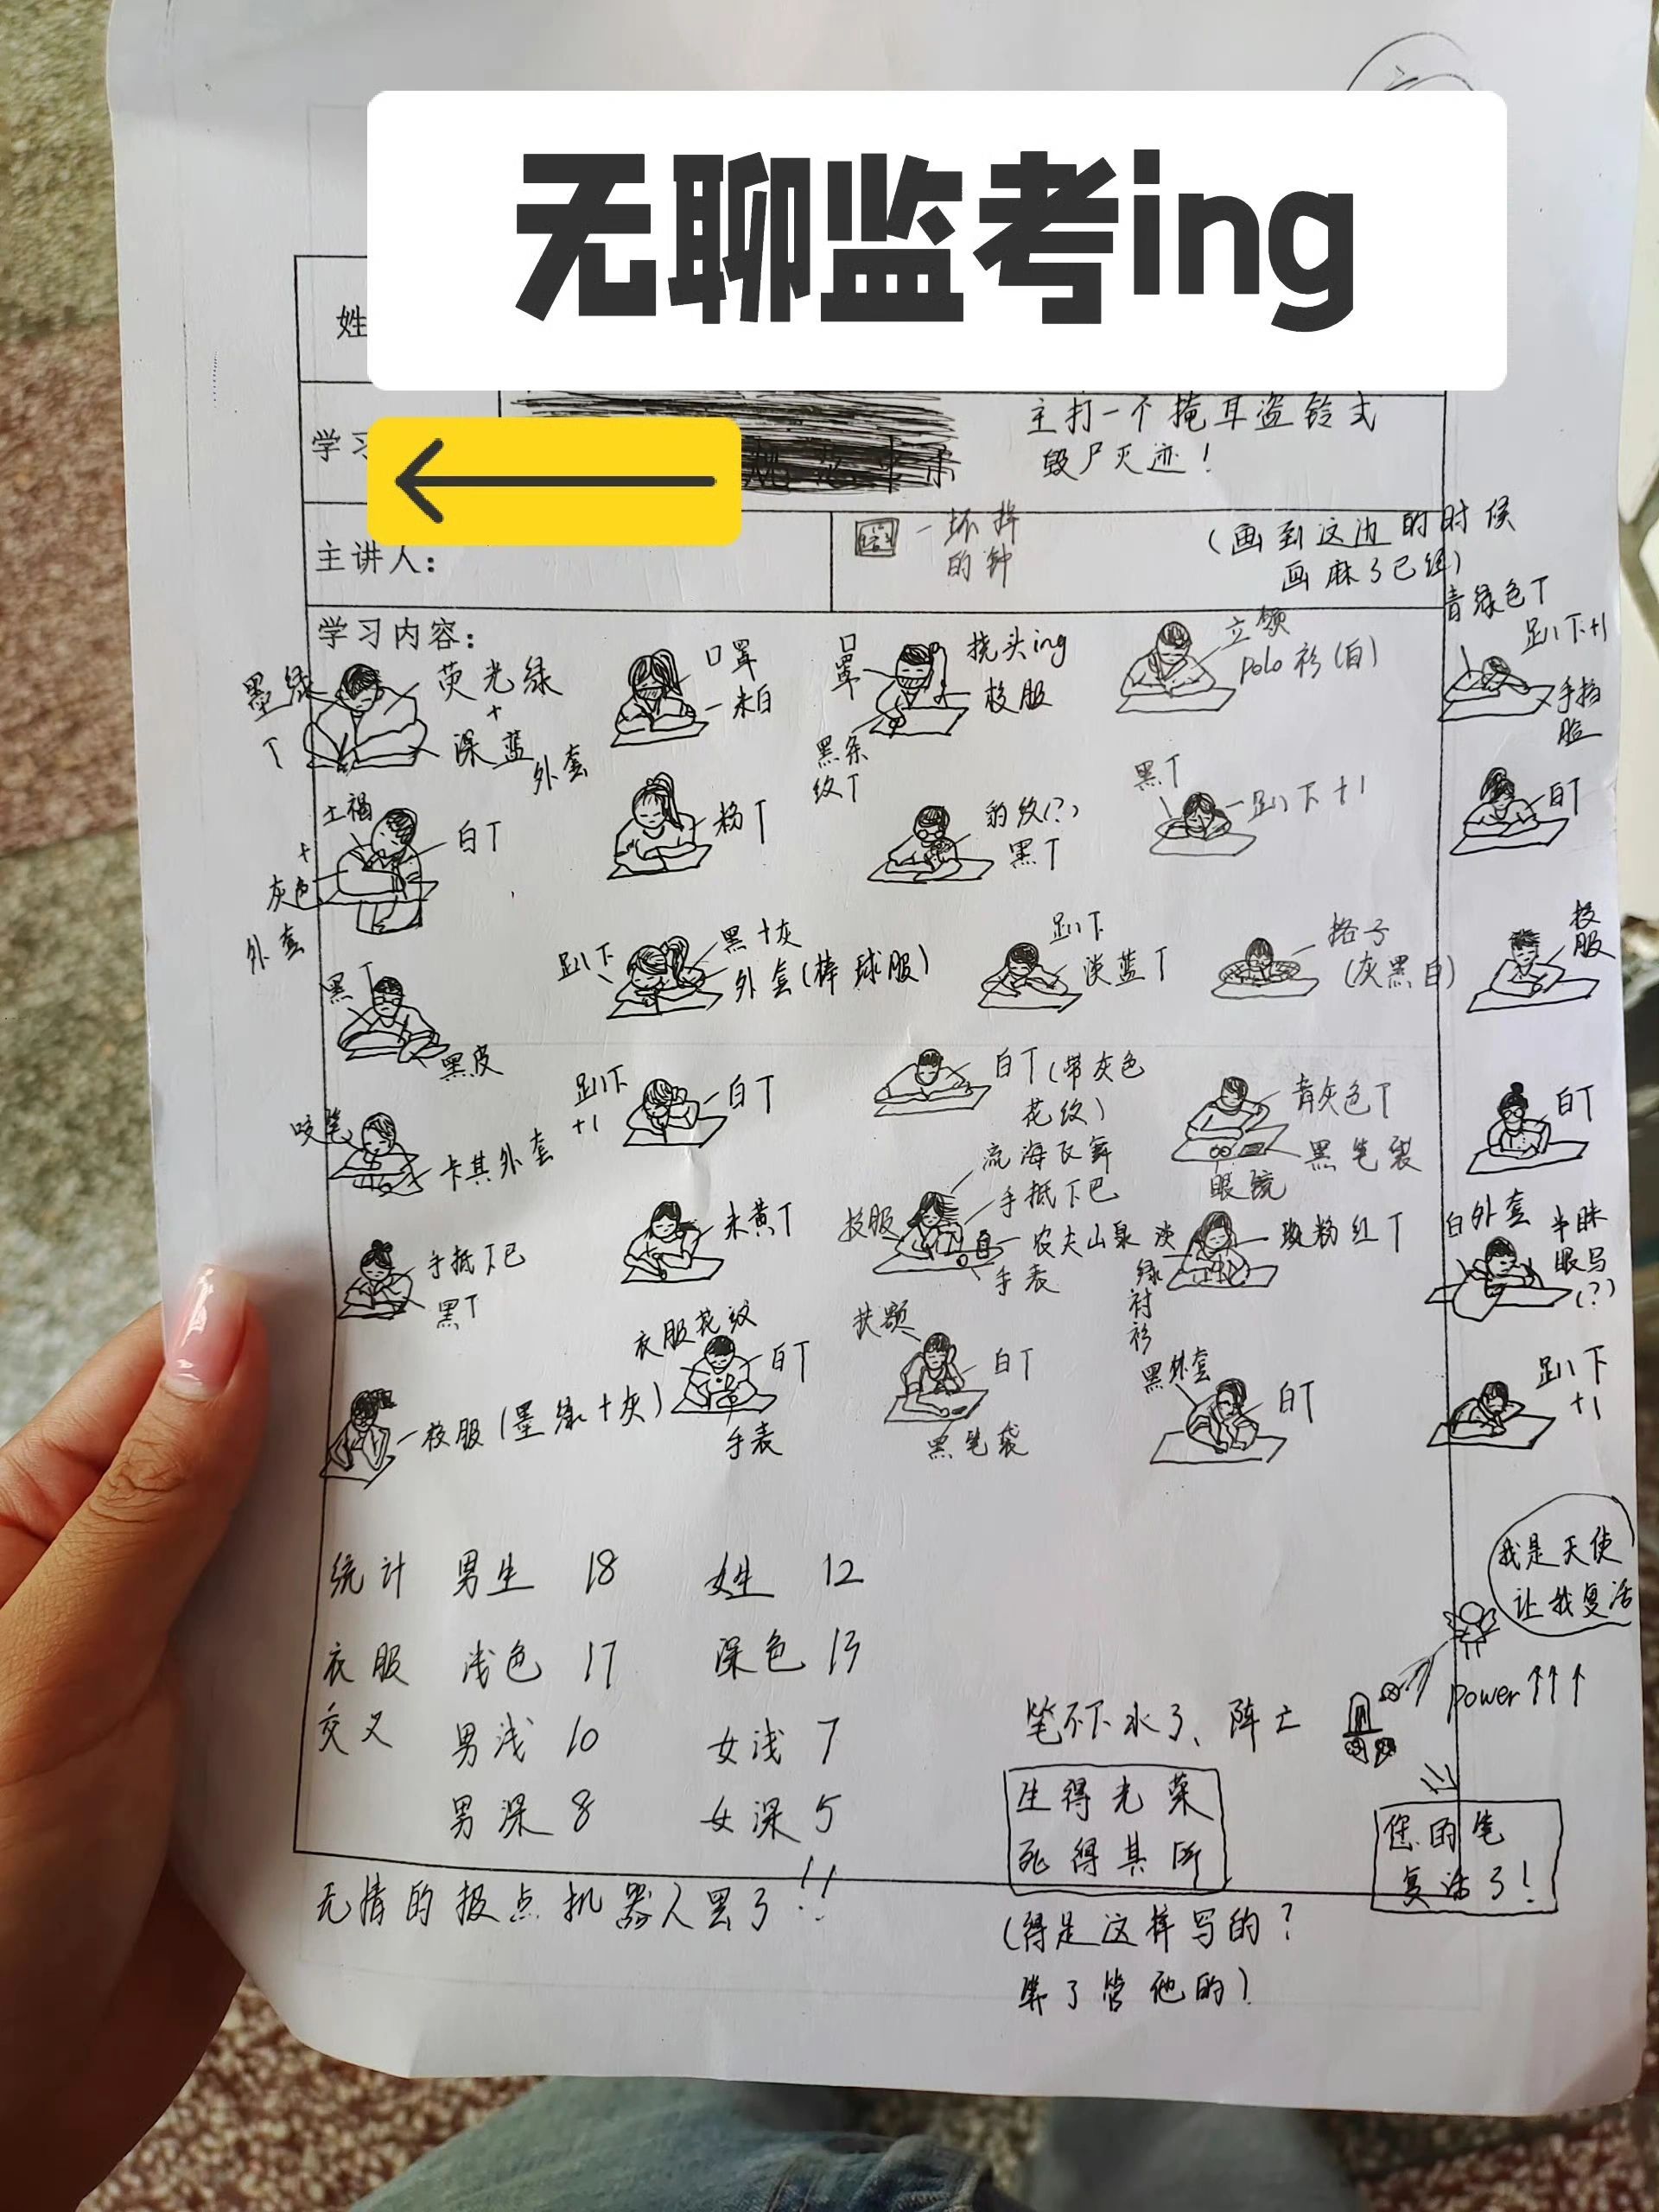 无聊监考ing
姓
学习
主打一个掩耳盗铃式
毁尸灭迹！
主讲人：
一坏掉
的钟
（画到这边的时候
画麻了已经）
学习内容：
墨绿
T
荧光绿
+
深蓝
外套
口罩
米白
口罩
挠头ing
校服
黑条
纹T
立领
polo衫（白）
青绿色T
趴下+1
手挡
脸
土褐
+
灰色
外套
白T
粉T
豹纹(?)
黑T
黑T
趴下+1
白T
黑T
黑皮
趴下
黑+灰
外套（棒球服）
趴下
淡蓝T
格子
（灰黑白）
校服
咬笔
卡其外套
趴下
+1
白T
白T（带灰色
花纹）
青灰色T
黑笔袋
眼镜
白T
手抵下巴
黑T
米黄T
校服
流海飞舞
手抵下巴
农夫山泉
手表
淡
绿
衬
衫
粉红T
白外套
半眯
眼写
(?)
校服（墨绿+灰）
衣服花纹
白T
手表
扶额
白T
黑笔袋
黑外套
白T
趴下
+1
统计 男生 18 女生 12
衣服 浅色 17 深色 13
交叉 男浅 10 女浅 7
男深 8 女深 5
无情的报点机器人罢了!!
我是天使
让我复活
power↑↑↑
笔不下水了、阵亡
生得光荣
死得其所
您的笔
复活了！
（得是这样写的？
算了管他的）